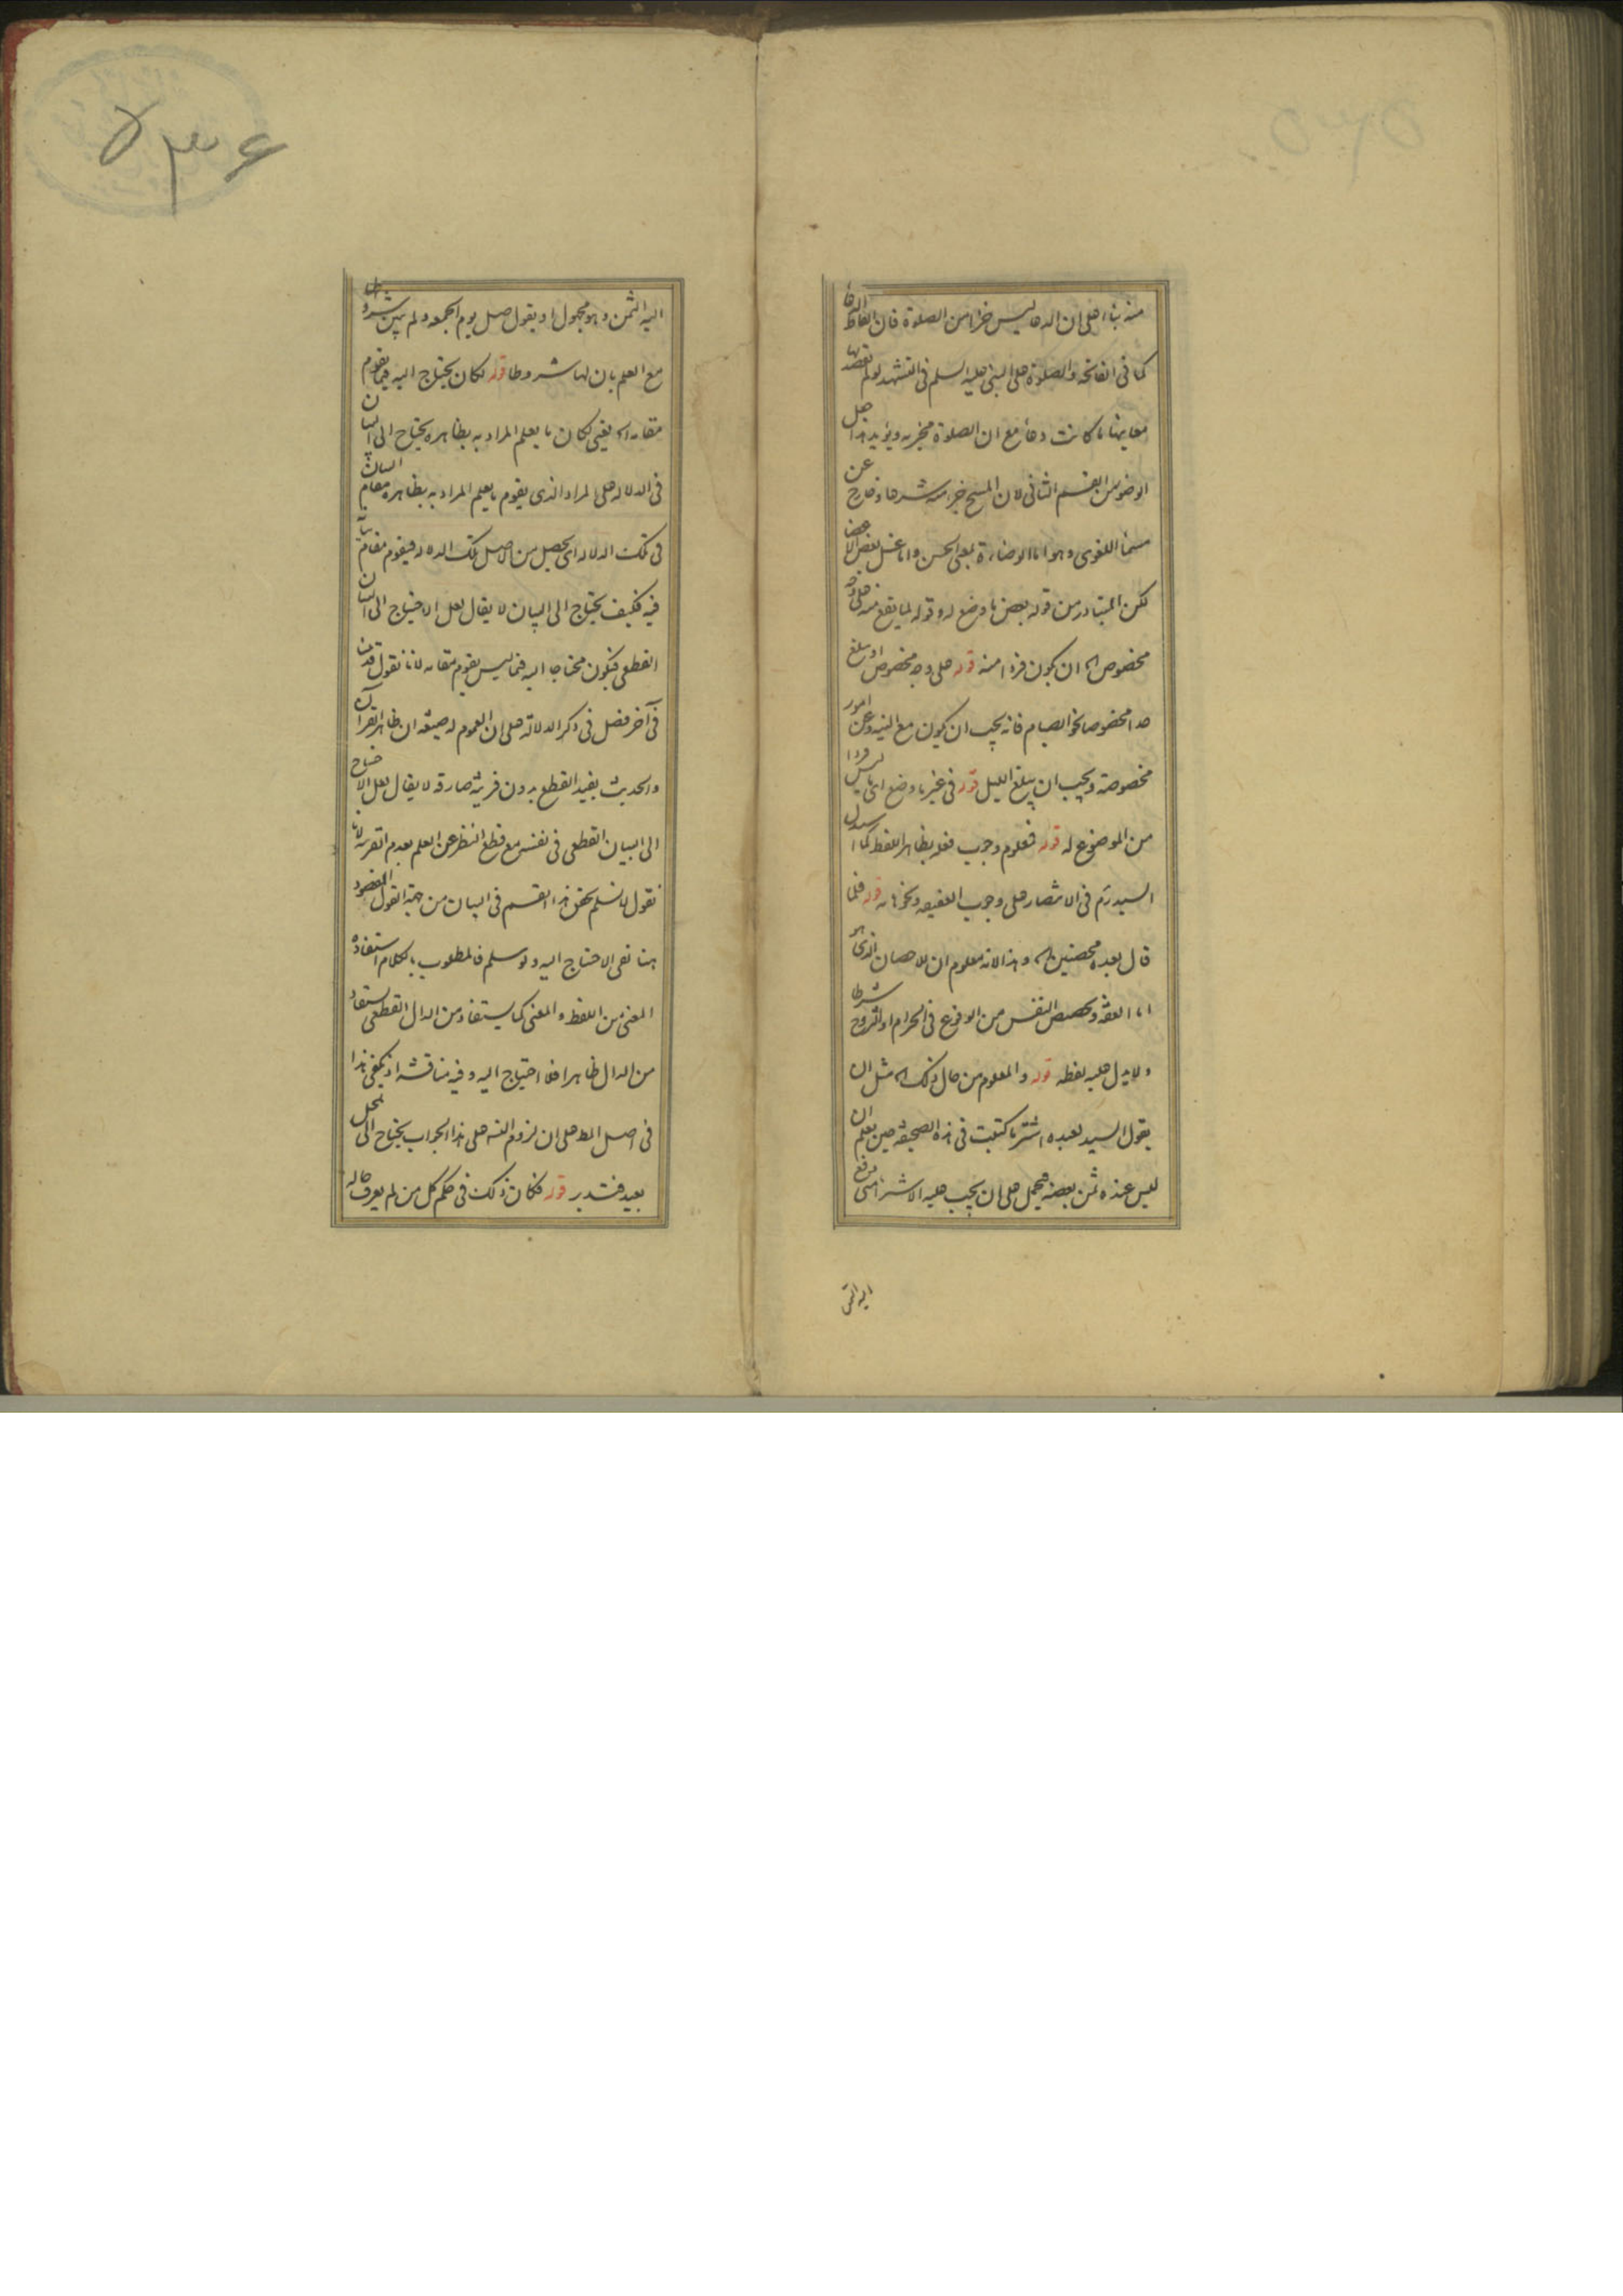 منه بناء على ان الدعا ليس جزا من الصلوة فان الفاظ الدعا
كما فى الفاتحة والصلوة على النبى عليه السلم فى التشهد لو لم يقصد بها
معاينها ما كانت دعاء مع ان الصلوة مجزيه ويؤيد هذا جعل
الوضوء من القسم الثانى لان المسح جزء منه شرعا وخارج عن
مسماه اللغوى وهو اما الوضاءة بمعنى الحسن واما غسل بعض الاعضا
لكن المتبادر من قوله بعض ما وضع له وقوله لما يقع منه على وجه
مخصوص اه ان يكون فردا منه قوله على وجه مخصوص او يبلغ
حدا مخصوصا نحو الصيام فانه يجب ان يكون مع النيه وعن امور
مخصوصة ويجب ان يبلغ الليل قوله فى غير ما وضع اى ما ليس فردا
من الموضوع له قوله فمعلوم وجوب فعله بظاهر اللفظ كما استدل
السيد ره فى الانتصار على وجوب العقيقه ونحوها به قوله فلما
قال بعده محصنين اه وهذا لانه معلوم ان الاحصان الذى هو
اما العفة و النفس من الوقوع فى الحرام او التزوج شرطا
ولا يدل عليه لفظه قوله والمعلوم من حال ذلك اه مثل ان
يقول السيد لعبده اشتر ما كتبت فى هذه الصحيفة حين يعلم ان
ليس عنده ثمن بعضه فيحمل على ان يجب عليه الاشترا متى دفع
اليه الثمن
اليه الثمن وهو مجهول او يقول صل يوم الجمعه ولم يبين شروطها
مع العلم بان لها شروطا قوله لكان يحتاج اليه فيما يقوم
مقامه اه يعنى لكان ما يعلم المراد به بظاهره يحتاج الى البيان
فى الدلاله على المراد الذى يقوم ما يعلم المراد به بظاهره مقام البيان
فى تلك الدلاله اى يحصل من الاصل تلك الدلاله فيقوم مقام بيانه
فيه فكيف يحتاج الى البيان لا يقال لعل الاحتياج الى البيان
القطعى فيكون محتاجا اليه فيما ليس يقوم مقامه لانا نقول قد بين
فى آخر فصل فى ذكر الدلالة على ان العموم له صيغه ان ظاهر القرآن
والحديث يفيد القطع بدون قرينة صارفه لا يقال لعل الاحتياج
الى البيان القطعى فى نفسه مع قطع النظر عن العلم بعدم القرينه لانا
نقول لا نسلم تحقق هذا القسم فى البيان من جهة القول المقصود
هنا نفى الاحتياج اليه ولو سلم فالمطلوب بالكلام استفادة
المعنى من اللفظ والمعنى كما يستفاد من الدال القطعى يستفاد
من الدال ظاهرا فلا احتياج اليه وفيه مناقشة اذ يكفى هذا
فى اصل المط على ان لزوم على هذا الجواب يحتاج الى تمحل
بعيد فتدبر قوله فكان ذلك فى حكم كل من لم يعرف حاله
۵۳۶